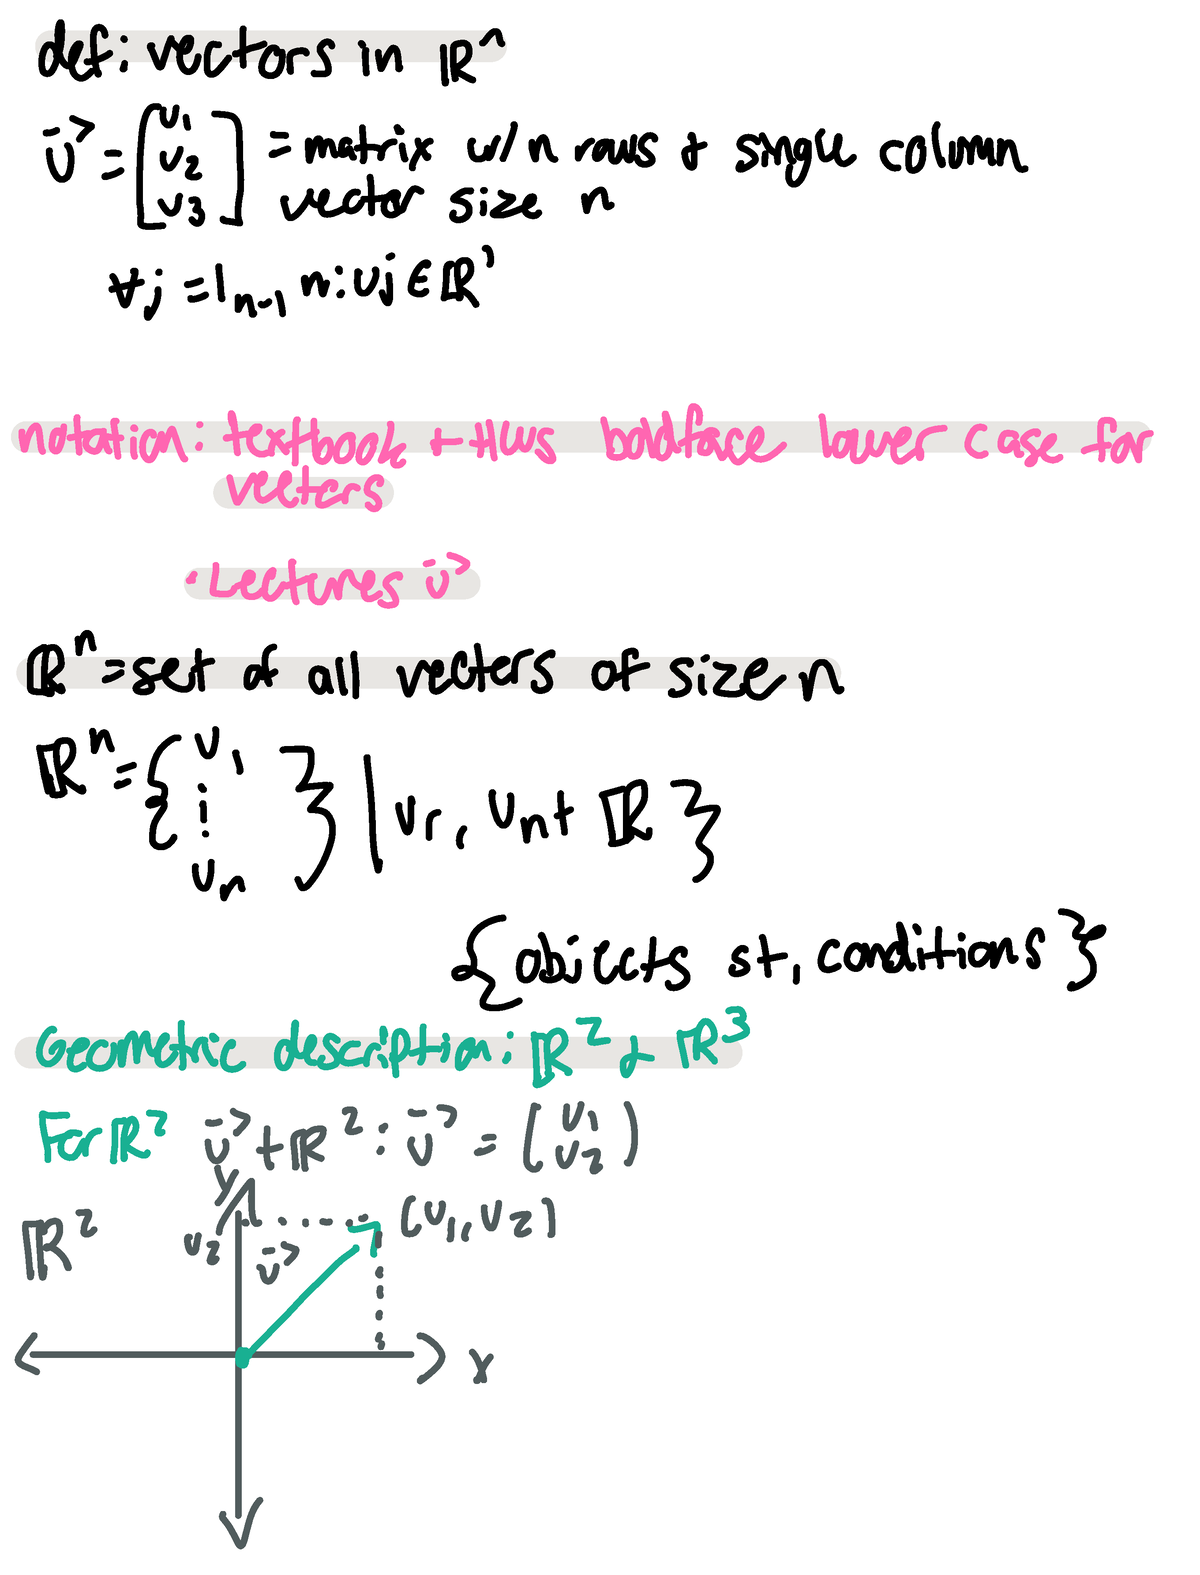 def: vectors in ℝⁿ
v⃗ = [v₁ v₂ v₃] = matrix w/ n rows & single column
vector size n
∀j = 1ₙ₋₁ n: vj ∈ ℝ¹
notation: textbook + HWs boldface lower case for
vectors
· Lectures v⃗
ℝⁿ = set of all vectors of size n
ℝⁿ = { v₁ ⋮ vₙ } | vr, vn+ ℝ }
{objects st, conditions}
Geometric description: ℝ² & ℝ³
For ℝ² v⃗ + ℝ²: v⃗ = (v₁ v₂)
y
ℝ² v₂ v⃗ (v₁, v₂)
x